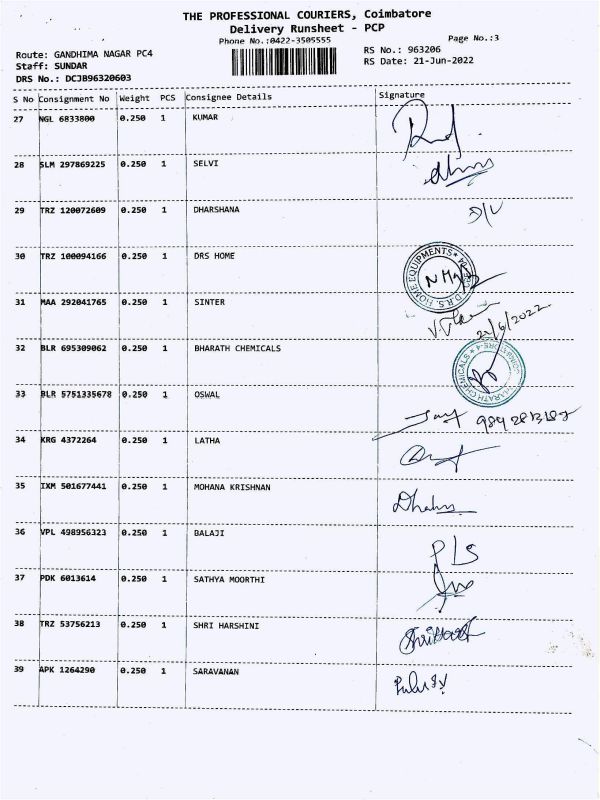 THE PROFESSIONAL COURIERS, Coimbatore
Delivery Runsheet - PCP
Phone No.:0422-3505555
Page No.:3
Route: GANDHIMA NAGAR PC4
RS No.: 963206
Staff: SUNDAR
RS Date: 21-Jun-2022
DRS No.: DCJB96320603
S No Consignment No Weight PCS Consignee Details Signature
27 NGL 6833800 0.250 1 KUMAR
28 SLM 297869225 0.250 1 SELVI
29 TRZ 120072609 0.250 1 DHARSHANA
30 TRZ 100094166 0.250 1 DRS HOME
D.R.S. HOME EQUIPMENTS
31 MAA 292041765 0.250 1 SINTER
21/6/2022
32 BLR 695309062 0.250 1 BHARATH CHEMICALS
BHARATH CHEMICALS
33 BLR 5751335678 0.250 1 OSWAL
34 KRG 4372264 0.250 1 LATHA
35 IXM 501677441 0.250 1 MOHANA KRISHNAN
36 VPL 498956323 0.250 1 BALAJI
37 PDK 6013614 0.250 1 SATHYA MOORTHI
38 TRZ 53756213 0.250 1 SHRI HARSHINI
39 APK 1264290 0.250 1 SARAVANAN